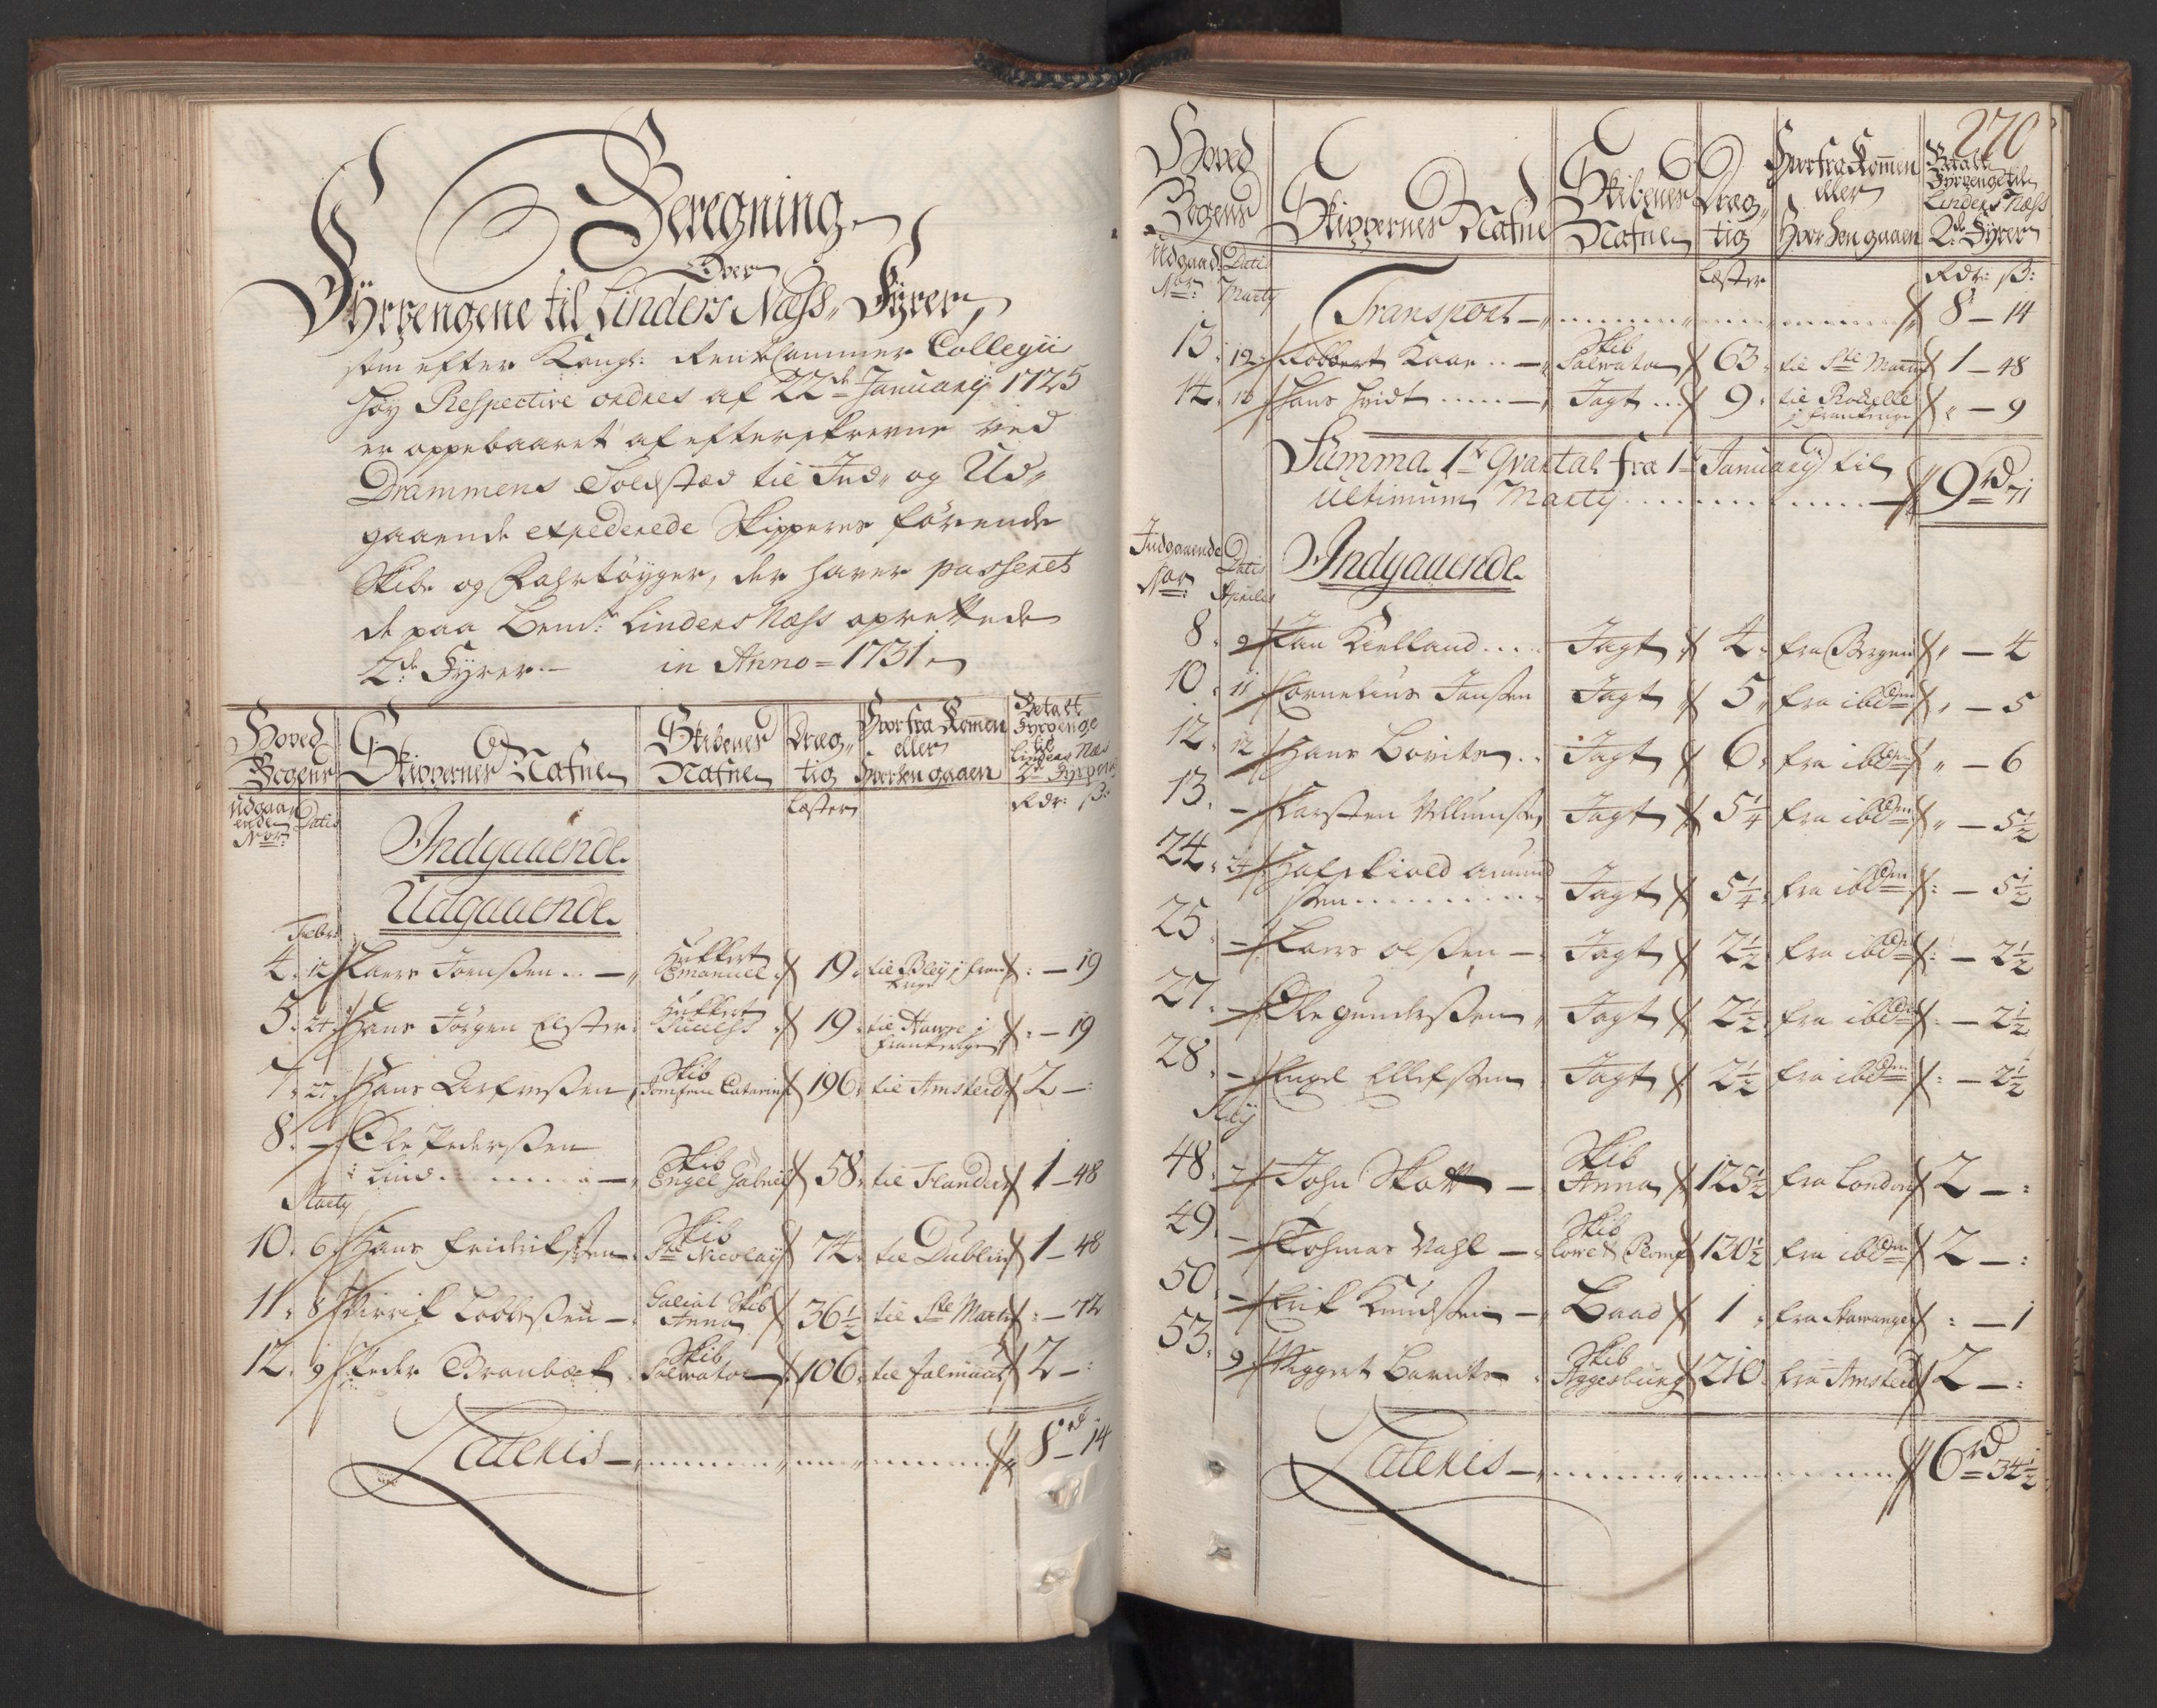 Beregning
Over
Fyrpengene til Linders Næss Fyrer,
som efter Kongl: RenteCammer Collegii
høy Respective ordres af 22de January 1725
er oppebaaret af efterskrevne ved
Drammens Toldsted til Ind- og Ud-
gaaende expederede Skippere førende
Skibe og Fahrtøyger, der haver passeret
de paa Bemte Linders Næss oprettede
2de Fyrer. – in Anno = 1731.
Hoved Bogens
Skippernes Nafne
Skibenes Nafne
Dræg- tig
Hvorfra Kommen eller Hvorhen gaaen
Betalt Fyrpenge til Linders Næs 2de Fyrer
Udgaa- ende Nor: Datis Læster Rdr: ß:
Indgaaende.
Udgaaende.
Febr:
4. 12 Lars Joensen Hukkert Emanuel 19 til Bley j Frankrige : – 19
5. 24 Hans Jørgen Elster Hukkert Success 19 til Havre j Frankerige : – 19
7. 27 Hans Skib Jomfrue Catarina 196 til Amsterd 2 – :
8. – Ole Pedersen
Lind Skib Engel Gabriel 58 til Flandern 1 – 48
Marty
10. 6 Hans Fridriksen Skib Ste Nicolay 74 til Dublin 1 – 48
11. 8 Dirrik Lobbesen Galiot Skib Anna 36½ til Ste Martin : – 72
12. 9 Peder Branbæk Skib Salvator 106 til Falmaut 2 – :
Lateris 8rd – 14
270
Hoved Bogens
Skippernes Nafne
Skibenes Nafne
Dræg- tig
Hvorfra Kommen eller Hvorhen gaaen
Betalt Fyrpenge til Linders Næss 2de Fyrer
Udgaad: Nor: Datis Marty Læster Rdr: ß:
Transport 8 – 14
13. 12 Robbert Kaae Skib Salvator 63 til Ste Martin 1 – 48
14. 16 Hans Hvidt Jagt 9 til Rochelle j Frankerige " – 9
Summa 1te Qvartal fra 1te January til
ultimum Marty 9rd 71
Indgaaende Nor: Datis Aprilis
Indgaaende.
8. 9 Jan Kielland Jagt 4 fra Bergen " – 4
10. 11 Cornelius Jansen Jagt 5 fra ibdem " – 5
12. 12 Hans Jagt 6 fra ibdem " – 6
13. – Carsten Villumsen Jagt 5¼ fra ibdem " – 5½
24. 24 Amund
sen Jagt 5¼ fra ibdem : – 5½
25. – Lars Olsen Jagt 2½ fra ibdem : – 2½
27. – Ole Gundersen Jagt 2½ fra ibdem : – 2½
28. – Engel Ellefsen Jagt 2½ fra ibdem : – 2½
May
48. 7 John Skott Skib Anna 125½ fra London 2 – :
49. – Tohmas Vahl Skib 130½ fra ibdem 2 – :
50. – Erik Knudsen Baad 1 fra Stavanger : – 1
53. 9 Viggert Barents Skib Aggersburg 210 fra Amsterd 2 – :
Lateris 6rd 34½